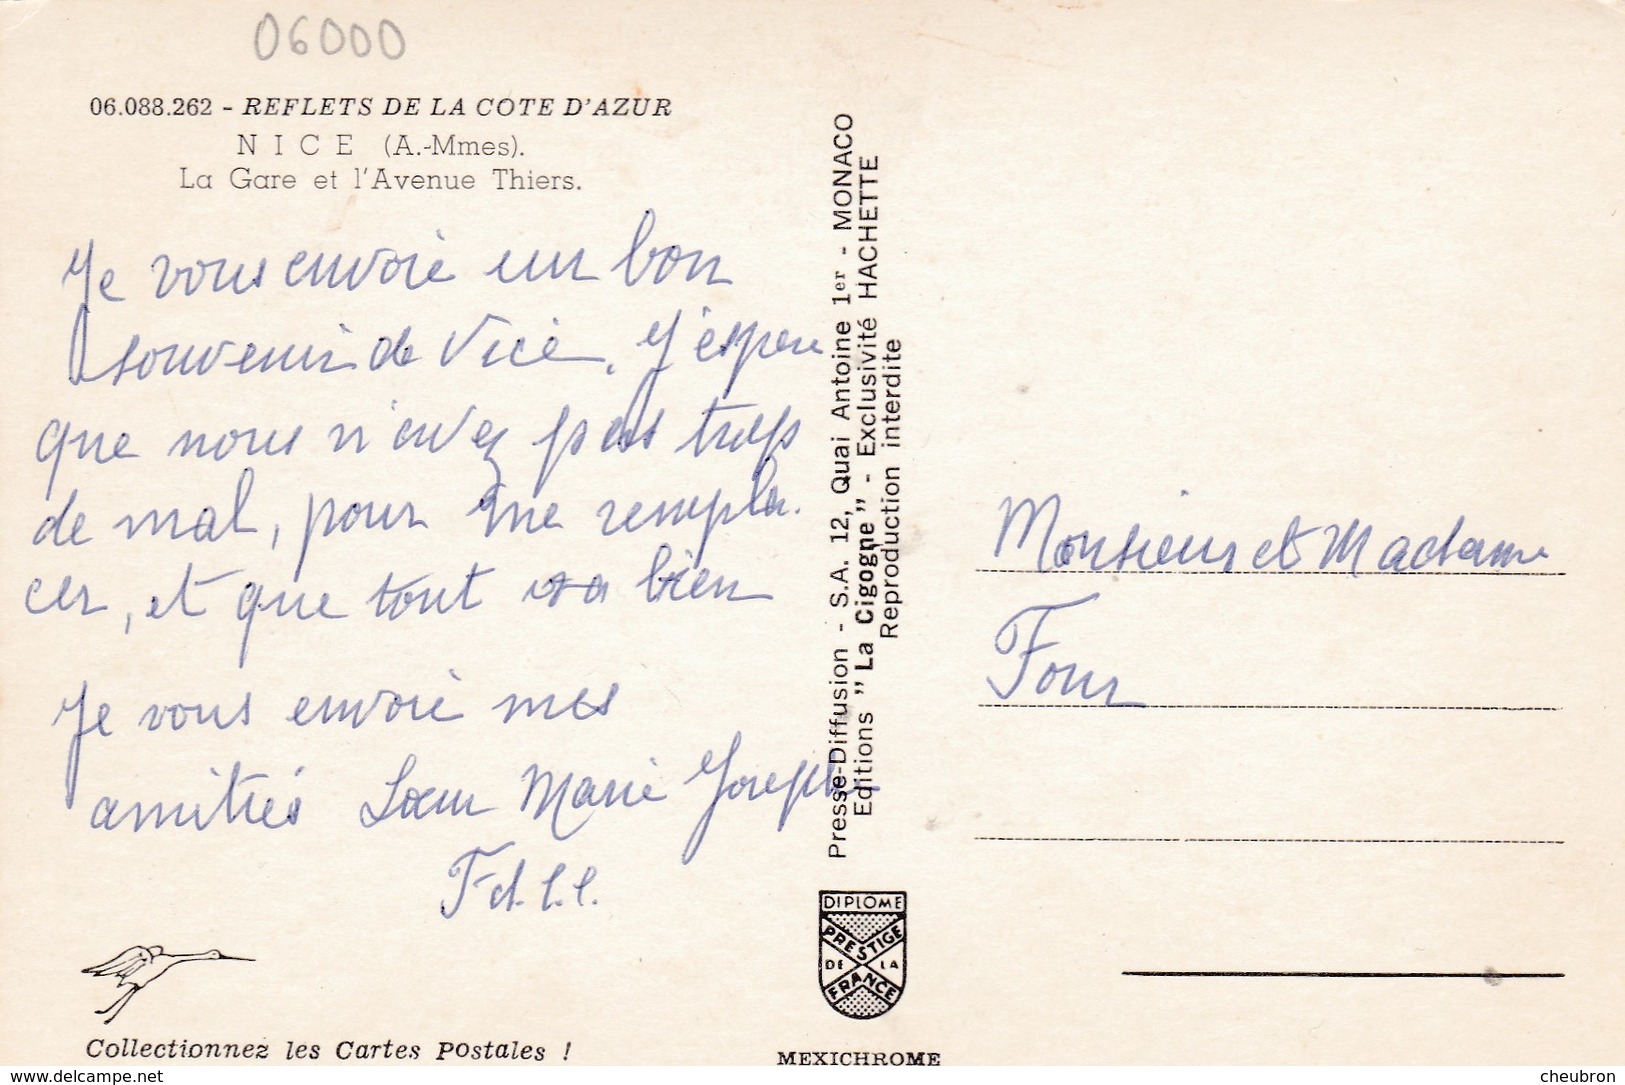 06000
06.088.262 - REFLETS DE LA COTE D'AZUR
NICE (A.-Mmes).
La Gare et l'Avenue Thiers.
Je vous envoie un bon
souvenir de Nice, J'espere
que vous n'avez pas trop
de mal, pour me rempla-
cer, et que tout va bien
Je vous envoie mes
amitiés Sœur Marie Joseph
F d. l. c.
Collectionnez les Cartes Postales !
Presse-Diffusion - S.A. 12, Quai Antoine 1er - MONACO
Editions "La Cigogne" - Exclusivité HACHETTE
Reproduction interdite
DIPLOME
PRESTIGE
DE LA
FRANCE
MEXICHROME
Monsieur et Madame
Four
www.delcampe.net
cheubron